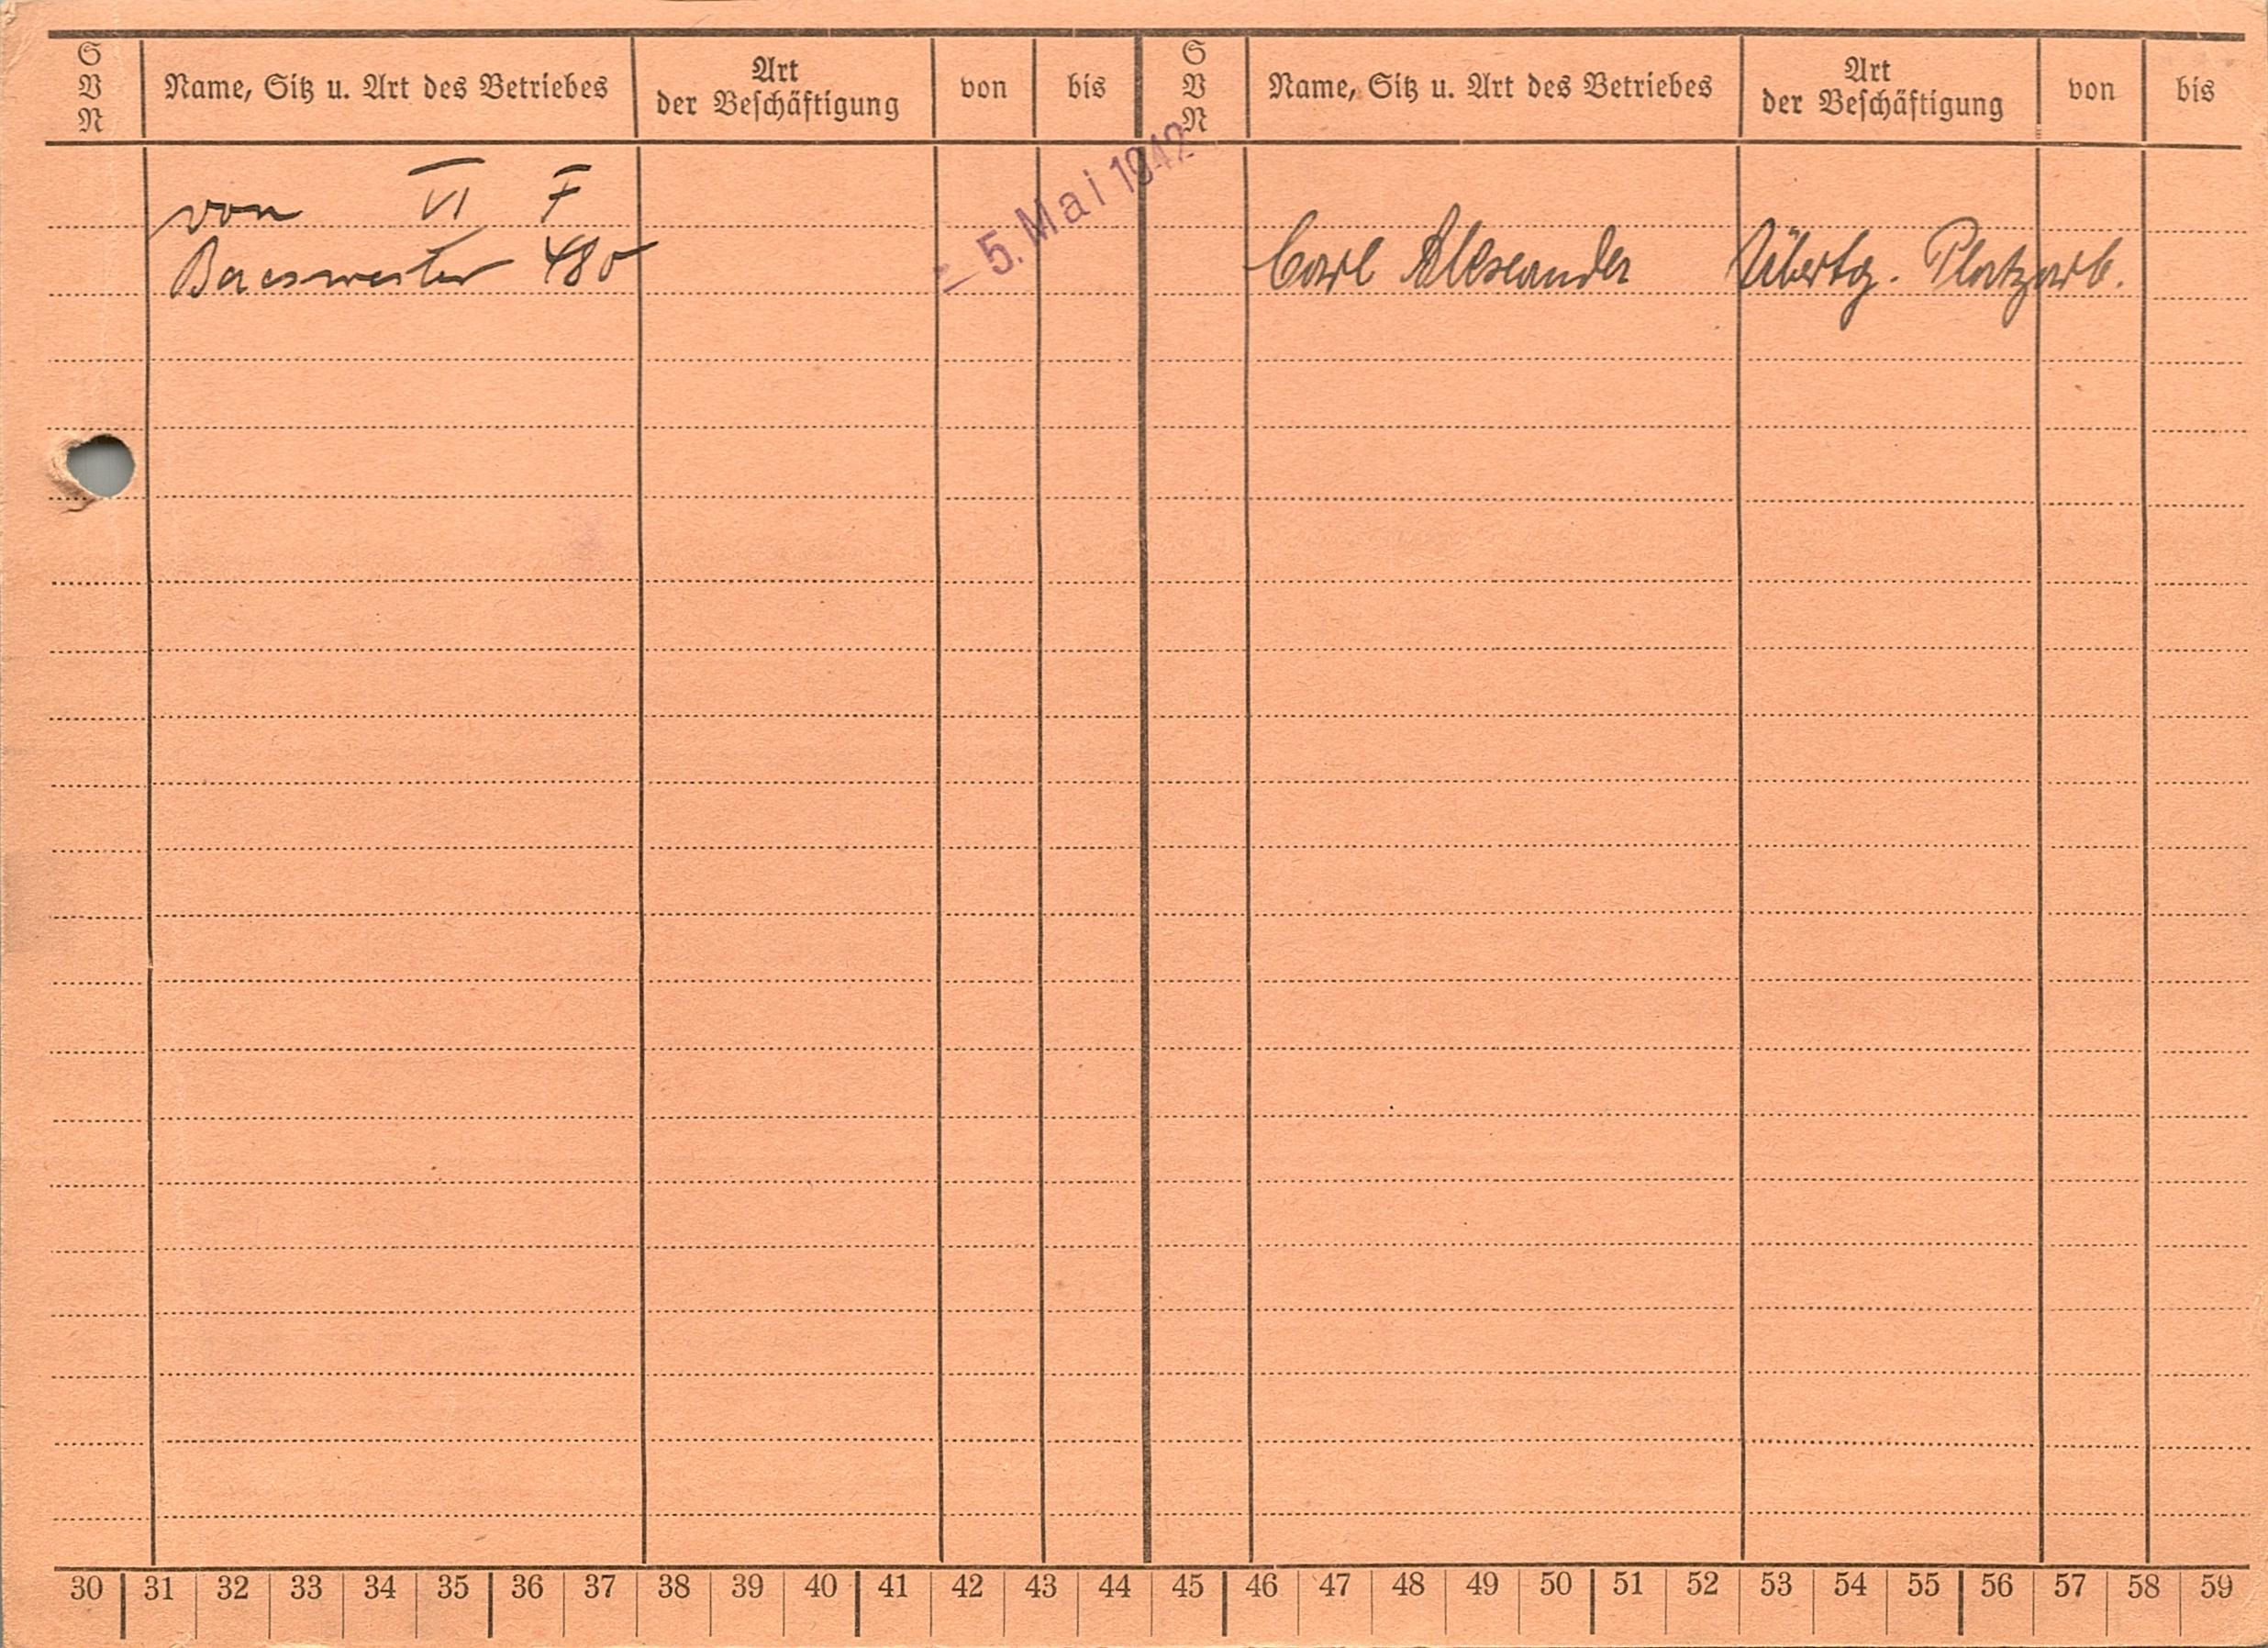 S V N Name, Sitz u. Art des Betriebes Art der Beschäftigung von bis S V N Name, Sitz u. Art des Betriebes Art der Beschäftigung von bis
von VI F
Baesweiler 480
- 5. Mai 1942
Carl Alexander Übertg. Platzarb.
30 31 32 33 34 35 36 37 38 39 40 41 42 43 44 45 46 47 48 49 50 51 52 53 54 55 56 57 58 59